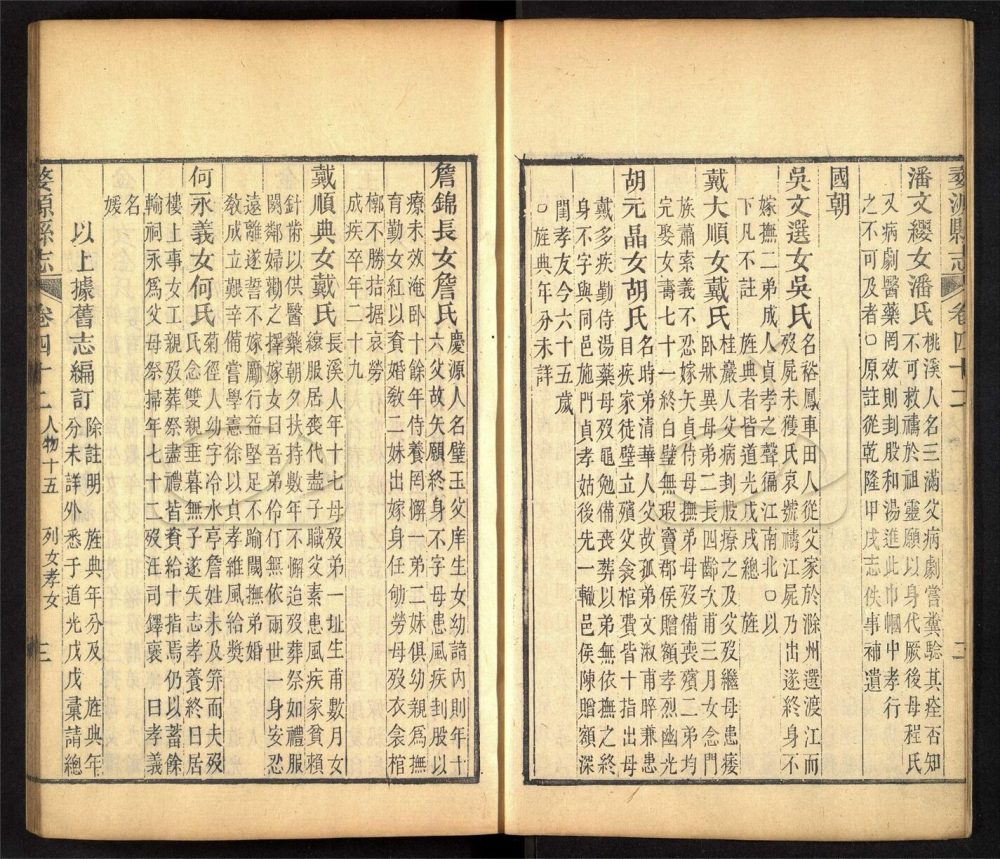 婺源縣志 卷四十二
潘文纓女潘氏 桃溪人名三滿父病劇嘗糞驗其痊否知
不可救禱於祖靈願以身代厥後母程氏
又病劇醫藥罔效則刲股和湯進此巾幗中孝行
之不可及者○原註從乾隆甲戌志佚事補遺
國朝
吳文選女吳氏 名裕鳳車田人從父家於滁州選渡江而
歿屍未獲氏哀號禱江屍乃出遂終身不
嫁撫二弟成人貞孝之聲徧江南北○以
下凡不註 旌典者皆道光戊戌總 旌
戴大順女戴氏 桂巖人父病刲股療之及父歿繼母患痿
臥牀異母弟二長四齡次甫三月女念門
族蕭索義不忍嫁矢貞侍母撫弟母歿備喪殯二弟均
完娶女壽七十一終白璧無瑕竇郡侯贈額孝烈幽光
胡元晶女胡氏 名時弟清華人父故孤弟文淑甫晬兼患
目疾家徒壁立殯父衾棺費皆十指出母
戴多疾勤侍湯藥母歿黽勉備喪葬以弟無依撫之終
身不字與同邑施門貞孝姑後先一轍邑侯陳贈額深
閨孝友今六十五歲
○旌典年分未詳
二
詹錦長女詹氏 慶源人名璧玉父庠生女幼諳內則年十
六父故矢願終身不字母患風疾刲股以
療未效淹臥十餘年侍養罔懈一弟二妹俱幼親爲撫
育勤女紅以資婚敎二妹出嫁身任劬勞母歿衣衾棺
槨不勝拮据哀勞
成疾卒年二十九
戴順典女戴氏 長溪人年十七母歿弟一址生甫數月女
縗服居喪代盡子職父素患風疾家貧賴
針黹以供醫藥朝夕扶持數年不懈迨歿葬祭如禮服
闋鄰婦勸之擇嫁女曰吾弟伶仃無依兩世一身安忍
遠離遂誓不嫁勵行益堅足不踰閾撫弟婚
敎成立艱辛備嘗學憲徐以貞孝維風給獎
何永義女何氏 菊徑人幼字冷水亭詹姓未及笄而夫歿
氏念雙親垂暮無子遂矢志孝養終日居
樓上事女工親歿葬祭盡禮皆資給十指焉仍以蓄餘
輸祠永爲父母祭掃年七十二歿汪司鐸襃 曰孝義
名
媛
以上據舊志編訂 除註明 旌典年分及 旌典年
分未詳外悉于道光戊戌彙請總
婺源縣志 卷四十二 人物十五 列女孝女 三